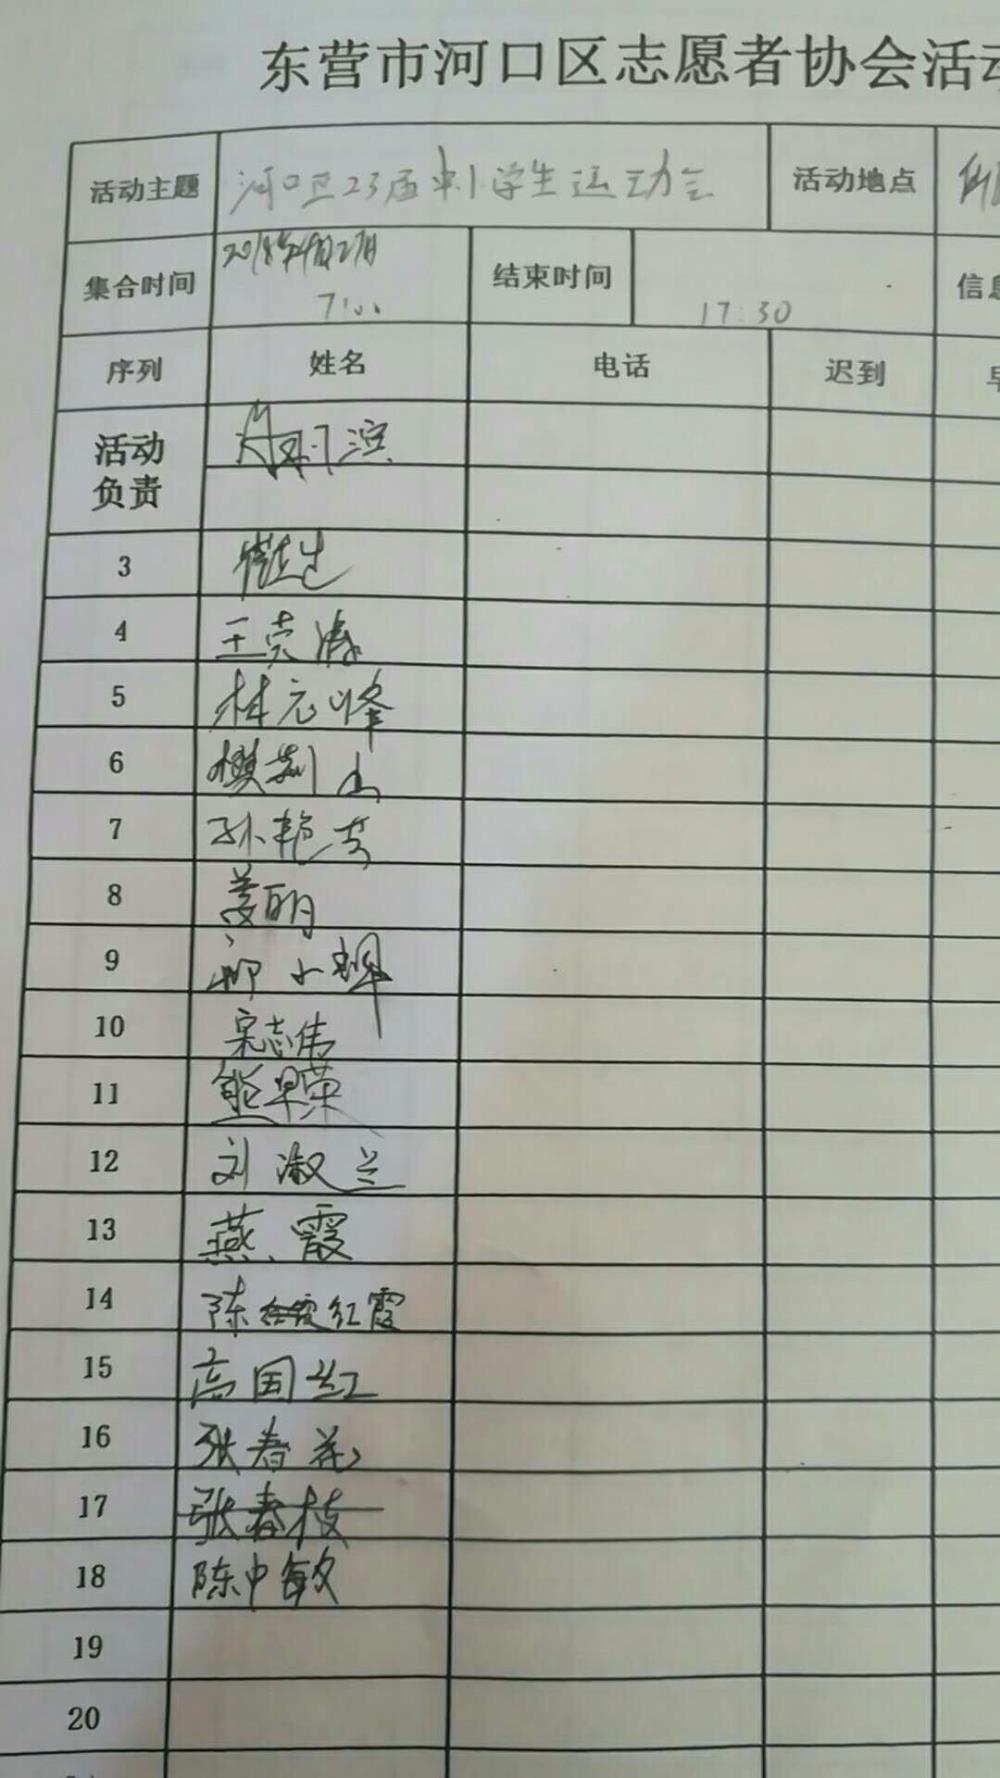 东营市河口区志愿者协会活动
活动主题 河口区23届中小学生运动会 活动地点
集合时间 2018年4月27日 7:00 结束时间 17:30 信息
序列 姓名 电话 迟到 早
活动
负责
3
4 王荣涛
5 林元峰
6
7 孙艳芳
8 姜丽
9
10 宋志伟
11 熊早荣
12 刘淑兰
13 燕霞
14 陈红霞
15 高国红
16 张春花
17 张春枝
18 陈中敏
19
20